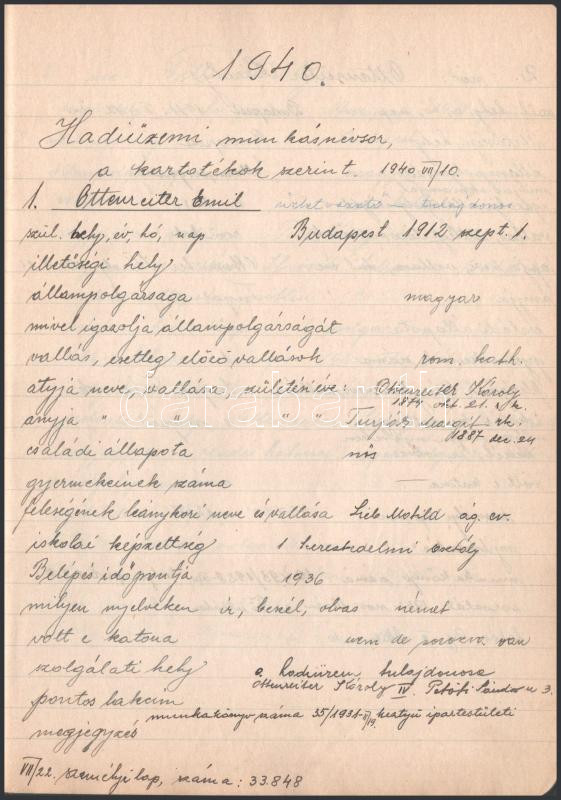 1940.
Hadiüzemi munkásnévsor,
a kartotékok szerint. 1940 VII/10.
1. Ottenreiter Emil üzletvezető – tulajdonos
szül. hely, év, hó, nap Budapest 1912 szept. 1.
illetőségi hely
állampolgársaga magyar
mivel igazolja állampolgárságát
vallás, esetleg előző vallások rom. kath.
atyja neve, vallása, születési éve: Ottenreiter Károly
1874 okt. 21. r. k.
anyja " " " " Margit rk.
1887 dec. 24
családi állapota nős
gyermekeinek száma —
feleségének leánykori neve és vallása Lieb Matild ág. ev.
iskolai képzettség 1 kereskedelmi osztály
Belépés időpontja 1936
milyen nyelveken ír, beszél, olvas német
volt e katona nem de sorozva van
szolgálati hely a hadiüzem tulajdonosa
pontos lakcím Ottenreiter Károly IV. Petőfi Sándor u 3.
megjegyzés munkakönyv száma 35/1931 kesztyű ipartestületi
VII/22. személyi lap, száma: 33.848
darabanth